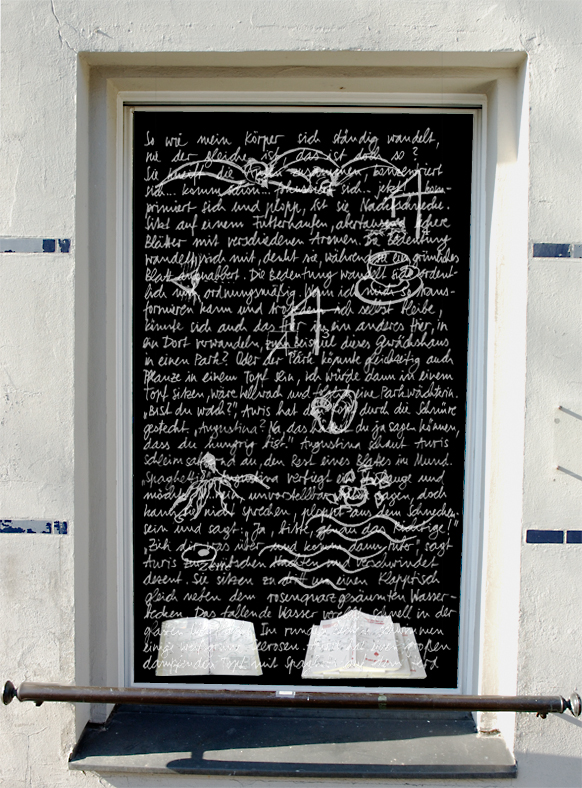 So wie mein Körper sich ständig wandelt,
nie der gleiche ist, das ist so?
Sie greift die konzentriert
sich... komm sich... jetzt kom-
primiert sich und plopp, ist sie Nacktschnecke.
Sitzt auf einem Futterhaufen, abertausend
Blätter mit verschiedenen Aromen. Die Bedeutung
wandelt sich mit, denkt sie, während sie ein grünliches
Blatt anknabbert. Die Bedeutung wandelt sich ordent-
lich und ordnungsmäßig. Wenn ich mich so trans-
formieren kann und ich selbst bleibe,
könnte sich auch das Hier in ein anderes Hier, in
ein Dort verwandeln, zum Beispiel dieses Gewächshaus
in einen Park? Oder der Park könnte gleichzeitig auch
Pflanze in einem Topf sein, ich würde dann in einem
Topf sitzen, wäre hellwach und eine Parkwächterin.
„Bist du wach?", Auris hat den durch die Schnüre
gesteckt, „Augustina? Na, das hast du ja sagen können,
dass du hungrig bist." Augustina schaut Auris
schleimsabbernd an, den Rest eines Blattes im Mund.
„Spaghetti?" Augustina verfügt Zunge und
möchte ein unvorstellbar sagen, doch
kann sie nicht sprechen, ploppt aus dem Schnecken-
sein und sagt: „Ja, bitte, genau das Richtige!"
„Zieh dir was über und komm dann rüber", sagt
Auris zur und verschwindet
dezent. Sie sitzen zu dritt um einen Klapptisch
gleich neben dem rosenquarzgesäumten Wasser-
becken. Das fallende Wasser schnell in der
Im runden schwimmen
einige Seerosen. großen
dampfenden Topf mit Spaghetti